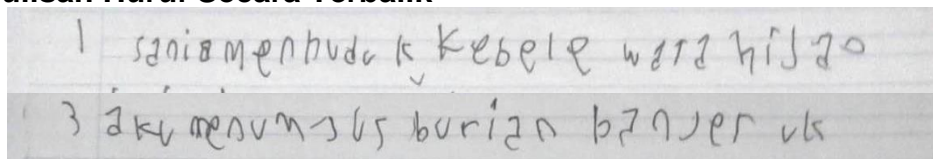 ulisan Huruf Secara Terbalik
1 saniamenbuduk Kebele wara hijao
3 aku menum burian banyer uk